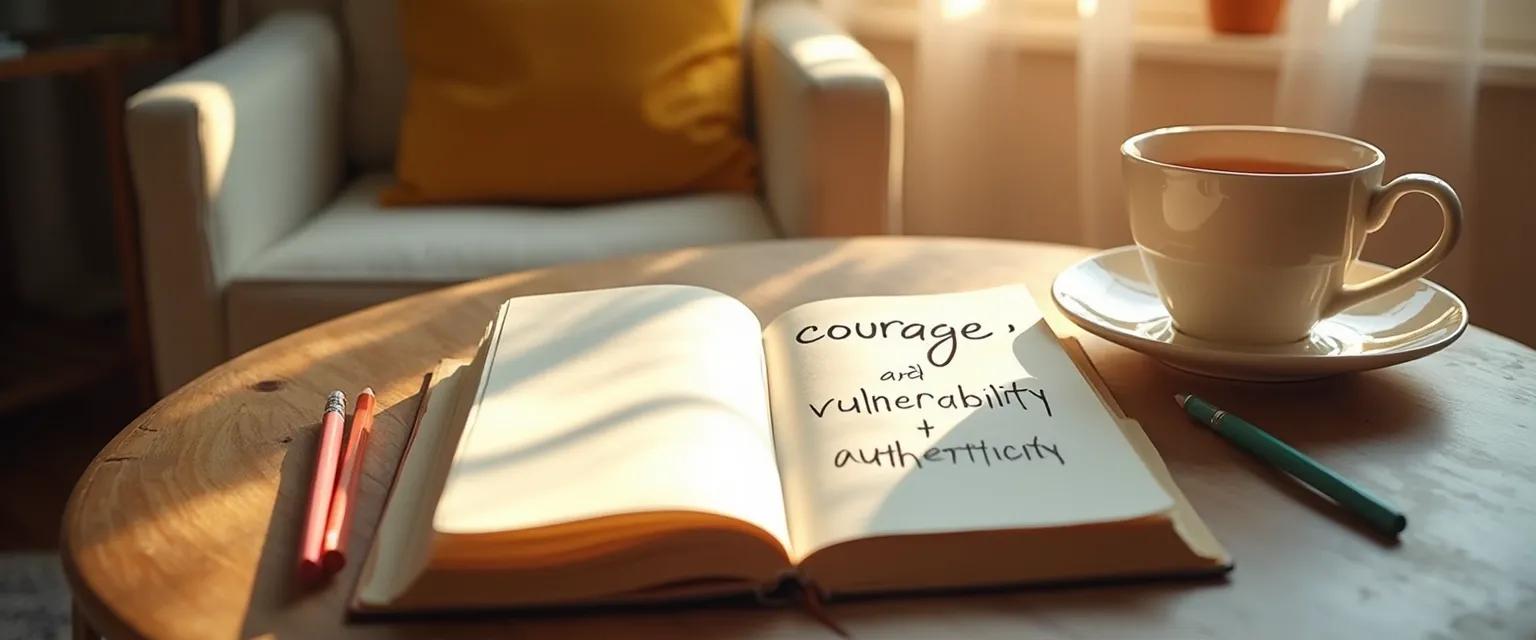 courage,
and
vulnerability
+
authetticity